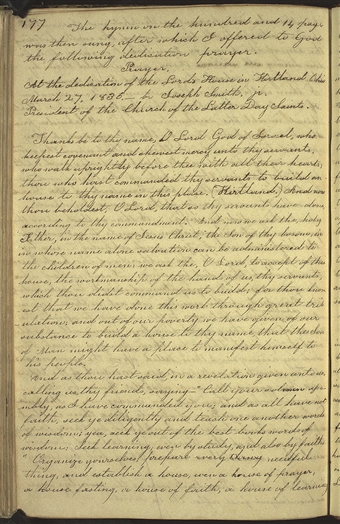 177
The hymn on the hundred and 14 page
was then sung, after which I offered to God
the following dedication prayer.
Prayer,
At the dedication of the Lord's House in Kirtland Ohio
March 27, 1836,— by Joseph Smith, jr.
President of the Church of the Latter Day Saints.
Thanks be to thy name, O Lord God of Israel, who
keepest covenant and shewest mercy unto thy servants,
who walk uprightly before thee with all their hearts,
thou who hast commanded thy servants to build an
house to thy name in this place. (Kirtland.) And now
thou beholdest, O Lord, that so thy servants have done,
according to thy commandment. And now we ask thee, holy
Father, in the name of Jesus Christ, the Son of thy bosom, in
in whose name alone salvation can be administered to
the children of men: we ask thee, O Lord, to accept of this
house, the workmanship of the hands of us, thy servants,
which thou didst command us to build; for thou know-
est that we have done this work through great trib-
ulation: and out of our poverty we have given of our
substance to build a house to thy name, that the Son
of Man might have a place to manifest himself to
his people.
And as thou hast said in a revelation given unto us,
calling us thy friends, saying—"Call your solemn ass-
embly, as I have commanded you; and as all have not
faith, seek ye diligently and teach one another words
of wisdom; yea, seek ye out of the best books words of
wisdom: Seek learning, even by study, and also by faith.
"Organize yourselves; prepare every needful
thing, and establish a house, even a house of prayer,
a house fasting, a house of faith, a house of learning